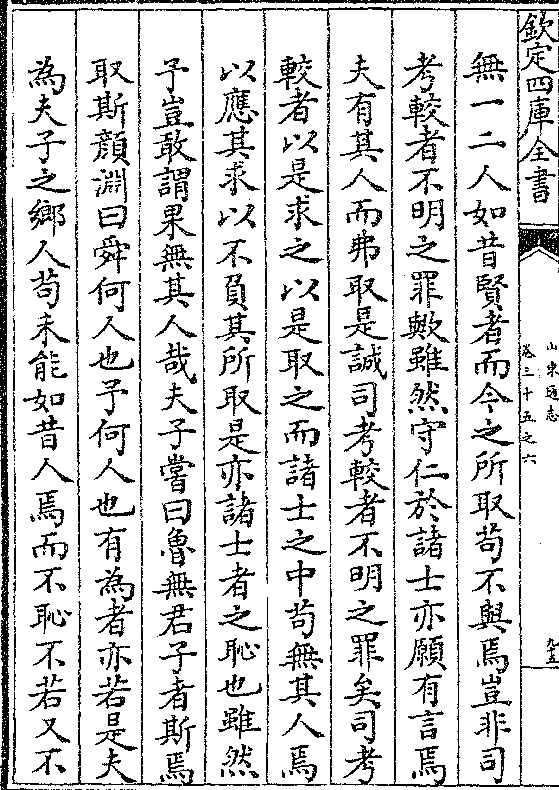 欽定四庫全書
山東通志
卷三十五之六
無一二人如昔賢者而今之所取苟不與焉豈非司
考較者不明之罪歟雖然守仁於諸士亦願有言焉
夫有其人而弗取是誠司考較者不明之罪矣司考
較者以是求之以是取之而諸士之中苟無其人焉
以應其求以不負其所取是亦諸士者之恥也雖然
予豈敢謂果無其人哉夫子嘗曰魯無君子者斯焉
取斯顏淵曰舜何人也予何人也有為者亦若是夫
為夫子之鄉人苟未能如昔人焉而不恥不若又不